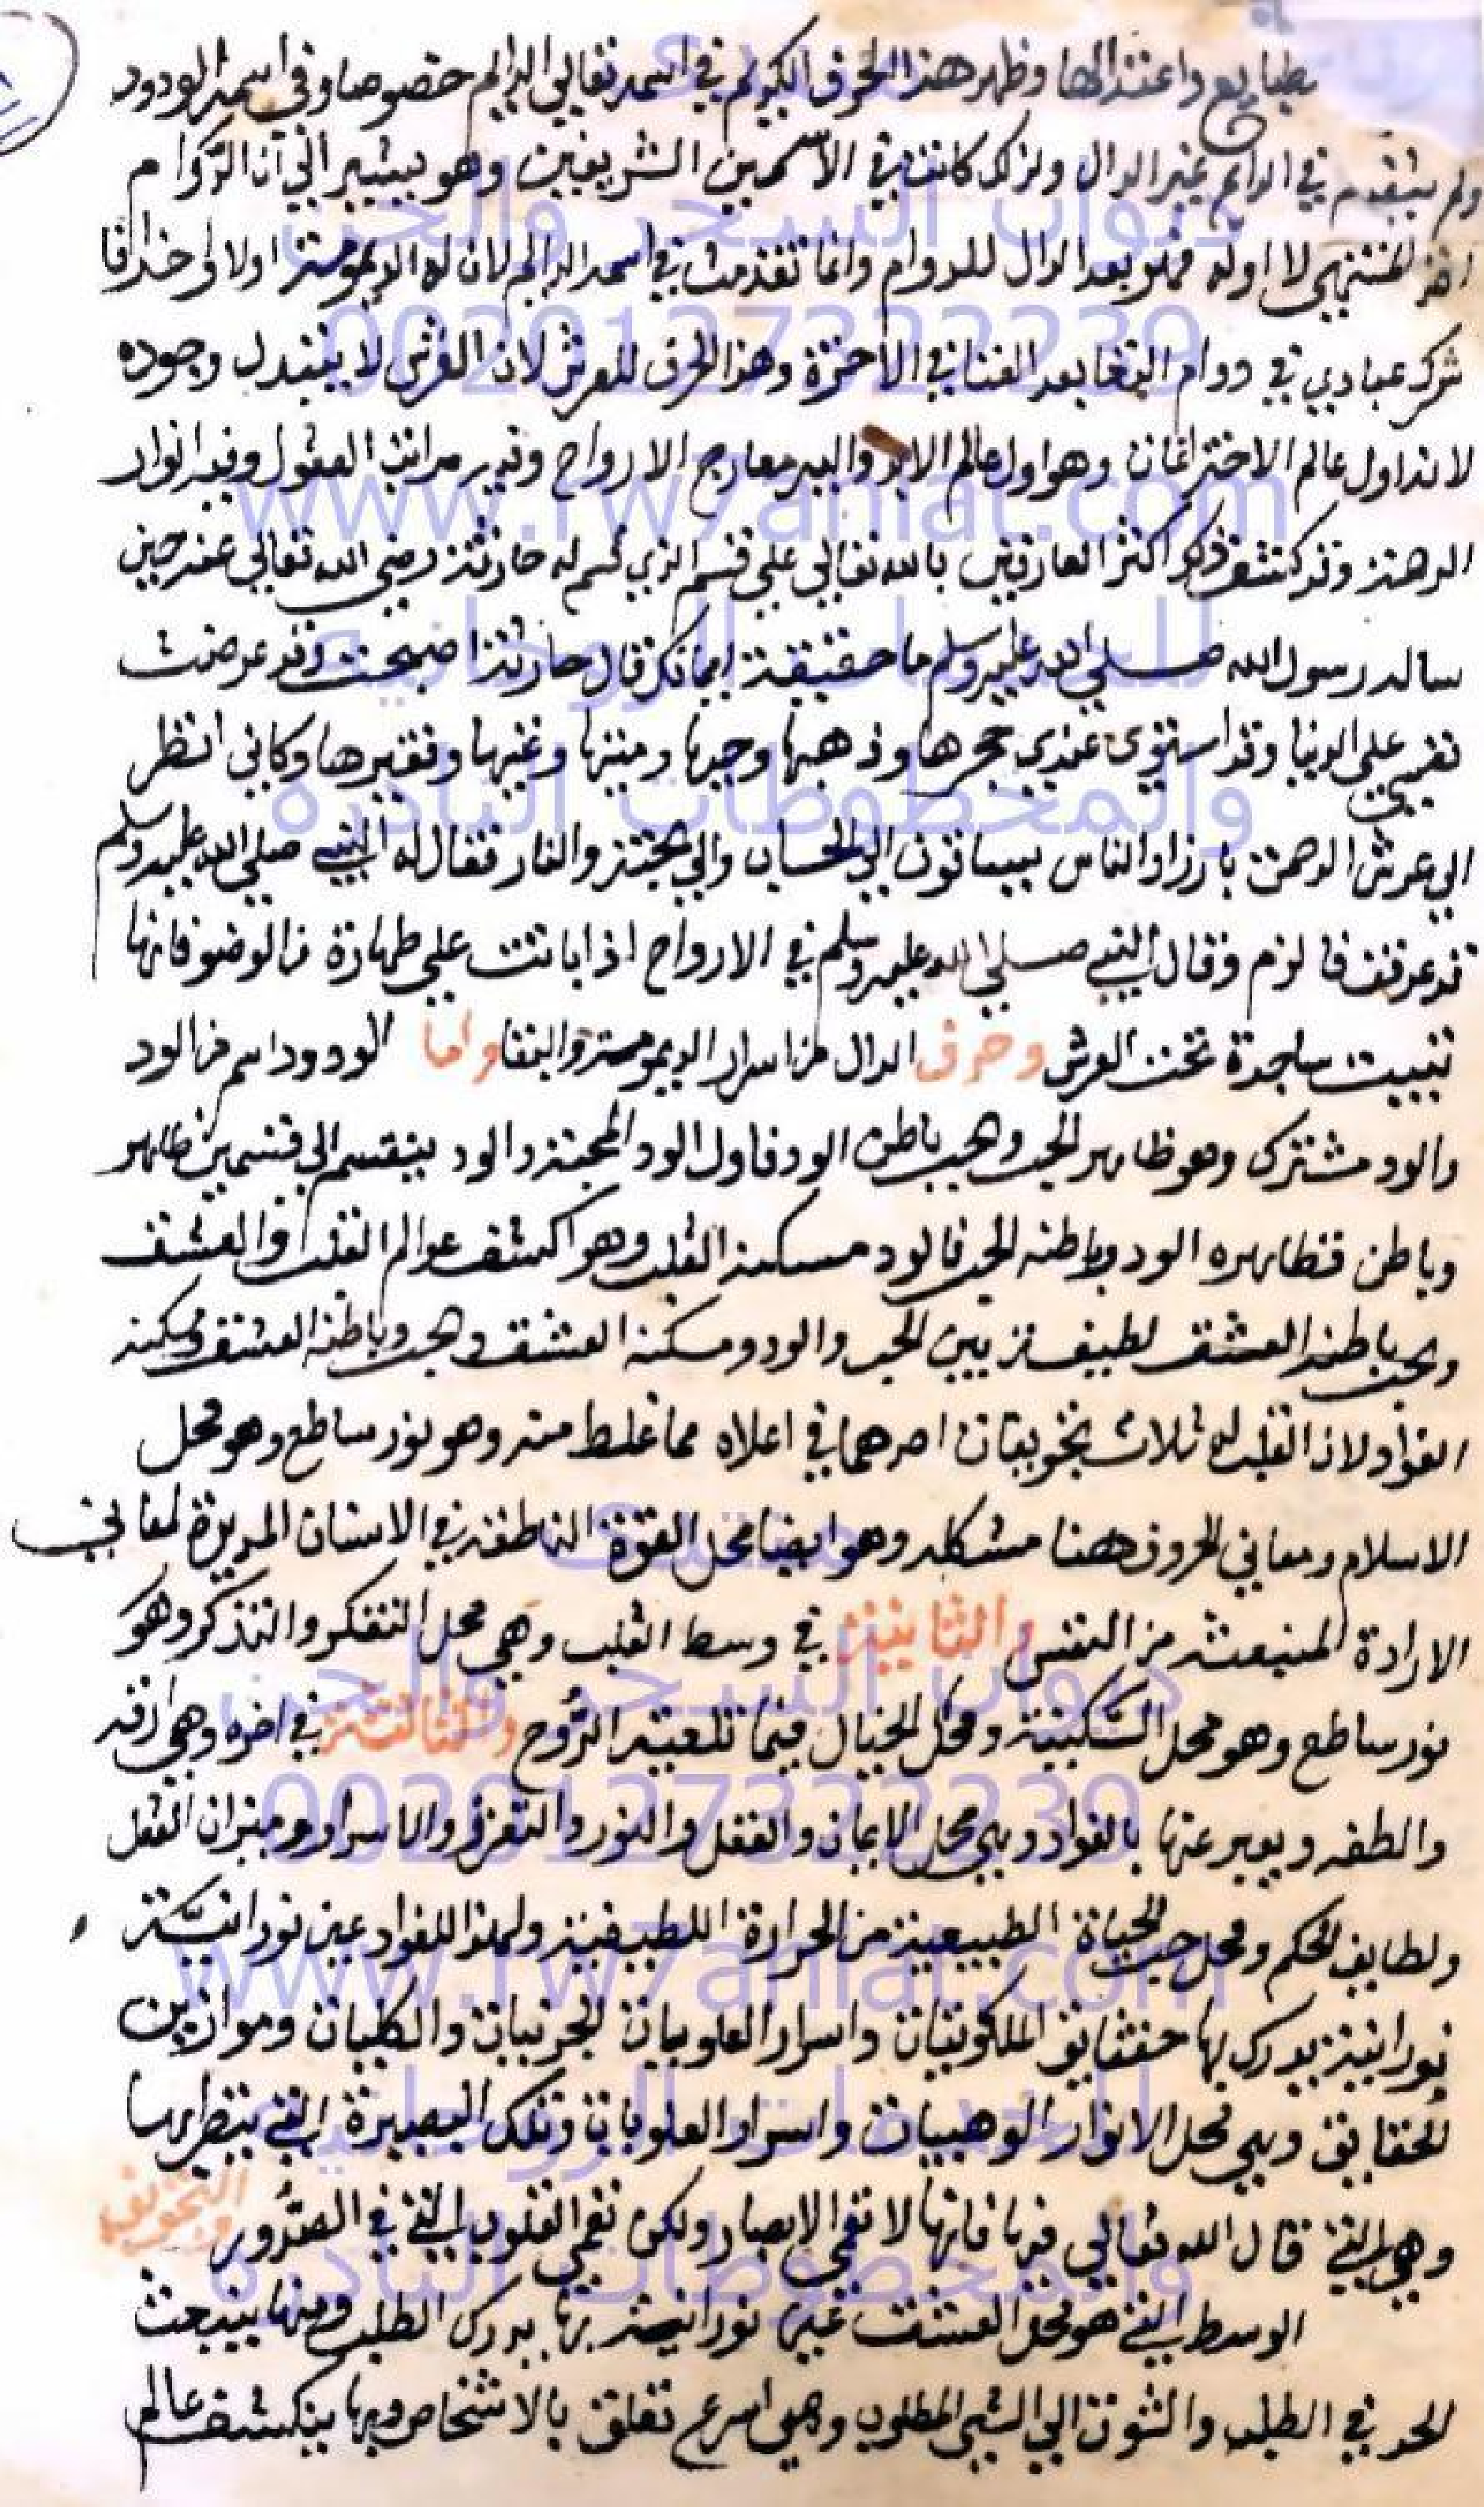 بطبايع واعتدالها وظهر هذا الحرف الكريم في اسمه تعالي الدايم خصوصا وفي اسمه الودود
ولم يتقدم في الدايم غير الدال ولذلك كانت في الاسمين الشريفين وهو يشير الي ان الدوام
لا اوله فهو بعد الدال للدوام وانما تقدمت في اسمه الدايم لان له الديمومية اولا
عبادي في دوام البقا بعد الفنا في الاخرة وهذا الحرف للعرش لان العرش لا يتبدل وجوده
لانه اول عالم الاختراعات وهو اول عالم الابد واليه معارج الارواح وفيه مراتب العقول وفيه انوار
وقد كشف ذلك اكثر العارفين بالله تعالي علي قسم الذي قسم له حارثة رضي الله تعالي عنه حين
ساله رسول الله صلي الله عليه وسلم ما حقيقة ايمانك قال حارثة اصبحت وقد عرضت
نفسي علي الدنيا وقد استوي عندي حجرها وذهبها وحيها وميتها وغنيها وفقيرها وكاني انظر
الي عرش الرحمن بارزا والناس يساقون الي الحساب والي الجنة والنار فقال له النبي صلي الله عليه وسلم
قد عرفت فالزم وقال النبي صلي الله عليه وسلم في الارواح اذا باتت علي طهارة من الوضو فانها
تبيت ساجدة تحت العرش وحرف الدال من اسرار الديمومية والبقا واما الودود اسم من الود
والود مشترك وهو ظاهر الحب وحب باطن الود فاول الود المحبة والود ينقسم الي قسمين ظاهر
وباطن فظاهره الود وباطنه الحب فالود مسكنه القلب وهو اكشف عوالم القلب والعشق
وحب باطنه العشق لطيفة بين الحب والود ومسكنه العشق وحب وباطنه العشق ومسكنه
الفواد لان القلب له ثلاث تجويفات احدهما في اعلاه مما غلظ منه وهو نور ساطع وهو محل
الاسلام ومعاني الحروف هنا مشكله وهو ايضا محل القوة الناطقة في الانسان المديرة لمعاني
الارادة المنبعثة من النفس والثانية في وسط القلب وهي محل التفكر والتذكر وهو
نور ساطع وهو محل السكينة ومحل الخيال فيما تلقيه الروح والثالثة في اخره وهي ارقه
والطفه ويعبر عنها بالفواد وهي محل الايمان والعقل والنور والاسرار وميزان العقل
ولطايف الحكم ومحل حب الحياة الطبيعية من الحرارة اللطيفية ولهذا للفواد عين نورانية
نورانية يدرك بها حقايق الملكوتيات واسرار العلويات الجزييات والكليات وموازين
الحقايق وهي محل الانوار الوهبيات واسرار العلويات وتلك البصيرة التي ينظر بها
وهي التي قال الله تعالي فيها فانها لا تعمي الابصار ولكن تعمي القلوب التي في الصدور والتجويف
الوسط التي هو محل العشق عين نورانية بها يدرك الطلب ومنها ينبعث
الحد في الطلب والشوق الي الشي المطلوب وهي اسرع تعلق بالاشخاص وبها ينكشف عالم
ديوان السحر والجن
00201127322239
www.rw7aniat.com
للخدمات الروحانيه
والمخطوطات النادرة
ديوان السحر والجن
00201127322239
www.rw7aniat.com
للخدمات الروحانيه
والمخطوطات النادرة